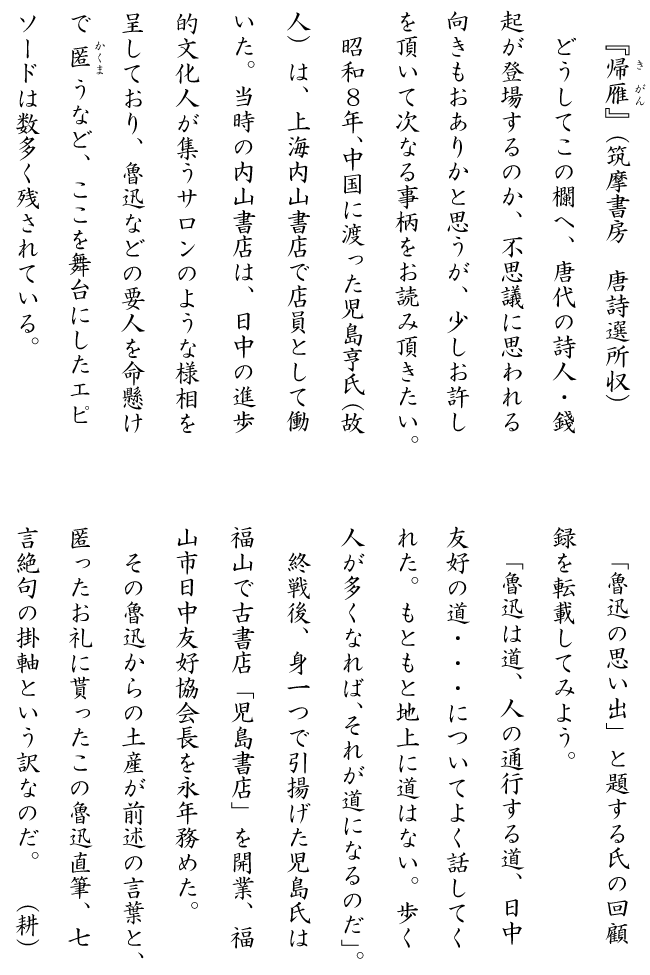 『帰雁』（筑摩書房　唐詩選所収）
きがん
　どうしてこの欄へ、唐代の詩人・錢
起が登場するのか、不思議に思われる
向きもおありかと思うが、少しお許し
を頂いて次なる事柄をお読み頂きたい。
　昭和８年、中国に渡った児島亨氏（故
人）は、上海内山書店で店員として働
いた。当時の内山書店は、日中の進歩
的文化人が集うサロンのような様相を
呈しており、魯迅などの要人を命懸け
で匿うなど、ここを舞台にしたエピ
かくま
ソードは数多く残されている。
　「魯迅の思い出」と題する氏の回顧
録を転載してみよう。
　「魯迅は道、人の通行する道、日中
友好の道・・・についてよく話してく
れた。もともと地上に道はない。歩く
人が多くなれば、それが道になるのだ」。
　終戦後、身一つで引揚げた児島氏は
福山で古書店「児島書店」を開業、福
山市日中友好協会長を永年務めた。
　その魯迅からの土産が前述の言葉と、
匿ったお礼に貰ったこの魯迅直筆、七
言絶句の掛軸という訳なのだ。　（耕）